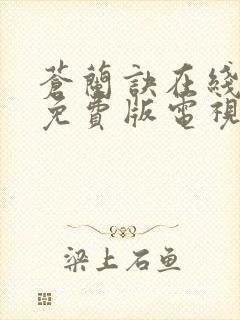 蒼蘭訣在綫
免費版電視
梁上石鱼